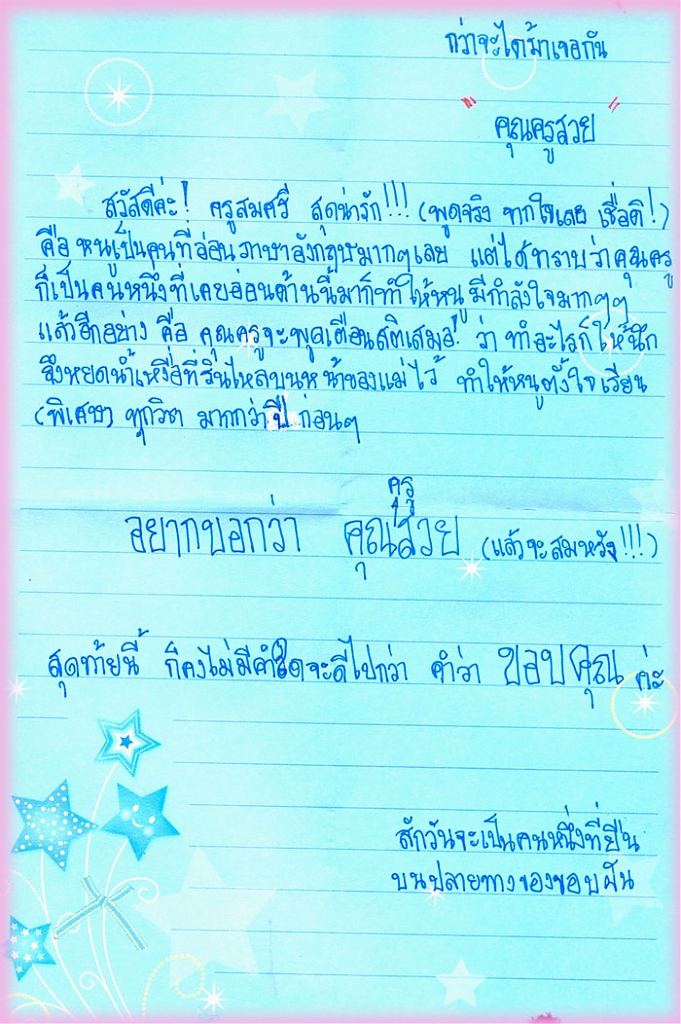 กว่าจะได้มาเจอกัน
" คุณครูสวย "
สวัสดีค่ะ! ครูสมศรี สุดน่ารัก!!! (พูดจริง จากใจเลย เชื่อดิ!)
คือ หนูเป็นคนที่อ่อนภาษาอังกฤษมากๆเลย แต่ได้ทราบว่าคุณครู
ก็เป็นคนหนึ่งที่เคยอ่อนด้านนี้มาก็ทำให้หนูมีกำลังใจมากๆๆ
แล้วอีกอย่าง คือ คุณครูจะพูดเตือนสติเสมอ! ว่า ทำอะไรก็ให้นึก
ถึงหยดน้ำเหงื่อที่รินไหลบนหน้าของแม่ไว้ ทำให้หนูตั้งใจเรียน
(พิเศษ) ทุกวิชา มากกว่าปีก่อนๆ
อยากบอกว่า คุณครูสวย (แล้วจะสมหวัง!!!)
สุดท้ายนี้ ก็คงไม่มีคำใดจะดีไปกว่า คำว่า ขอบคุณ ค่ะ
สักวันจะเป็นคนหนึ่งที่ยืน
บนปลายทางของขอบฝัน